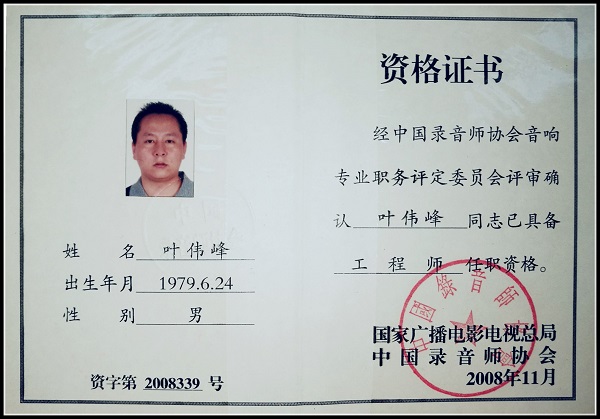 资格证书
经中国录音师协会音响
专业职务评定委员会评审确
认 叶伟峰 同志已具备
工程师 任职资格。
国家广播电影电视总局
中国录音师协会
2008年11月
姓 名 叶伟峰
出生年月 1979.6.24
性 别 男
资字第 2008339 号
中國錄音師協會